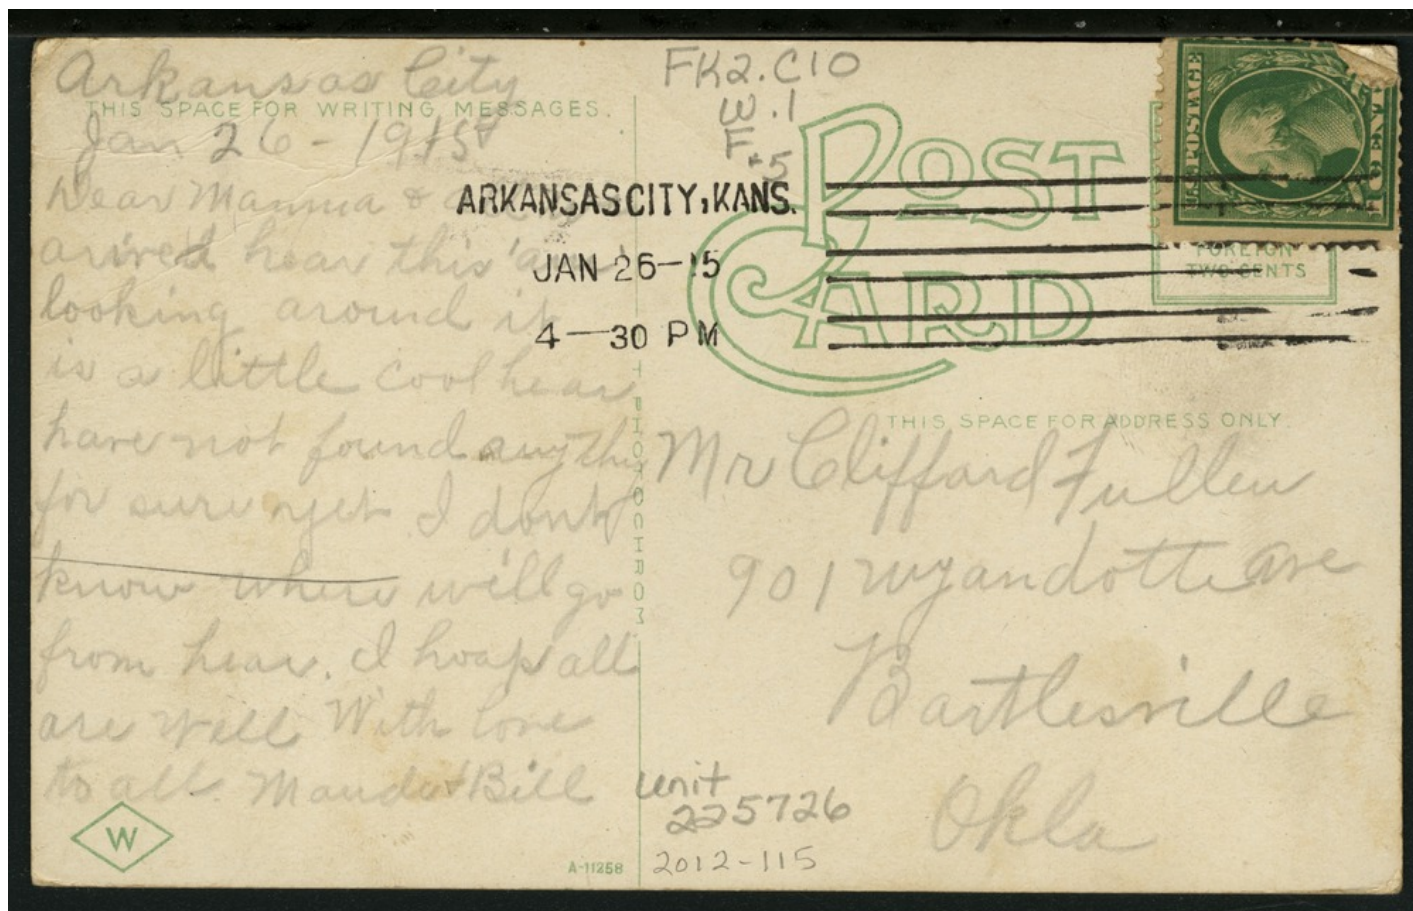 Arkansas City
THIS SPACE FOR WRITING MESSAGES.
Jan 26 - 1915
Dear Mamma &
arived hear this
looking around it
is a little cool hear
have not found anything
for sure yet I dont
know where will go
from hear. I hoap all
are well With love
to all. Maude & Bill
W
A-11258
PHOTOCHROM
FK2.C10
W.1
F.5
ARKANSAS CITY, KANS.
JAN 26-15
4-30 PM
POST
CARD
U.S. POSTAGE
FOREIGN
TWO CENTS
THIS SPACE FOR ADDRESS ONLY.
Mr Clifford Fullen
901 Wyandotte Ave
Bartlesville
Okla
unit
225726
2012-115